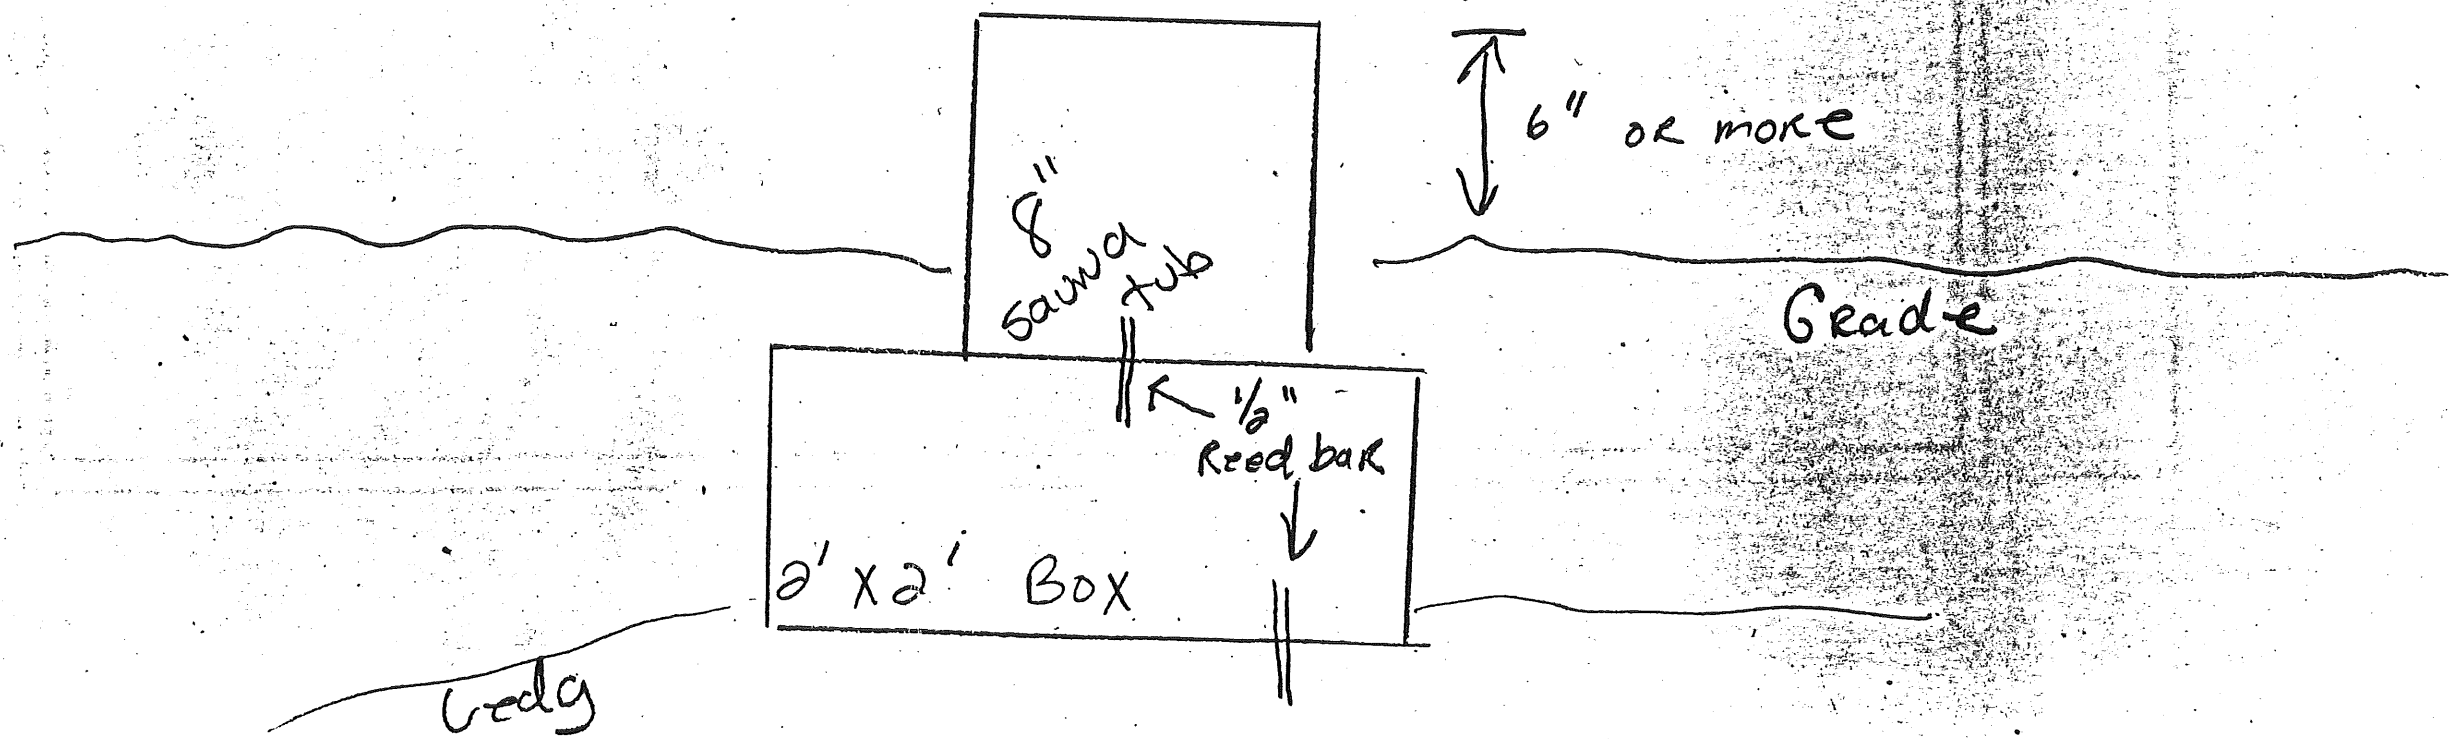 6" OR MORE
8"
sauna
tub
Gead-e
1/2"
Reed bar
2' x 2' Box
Ledg